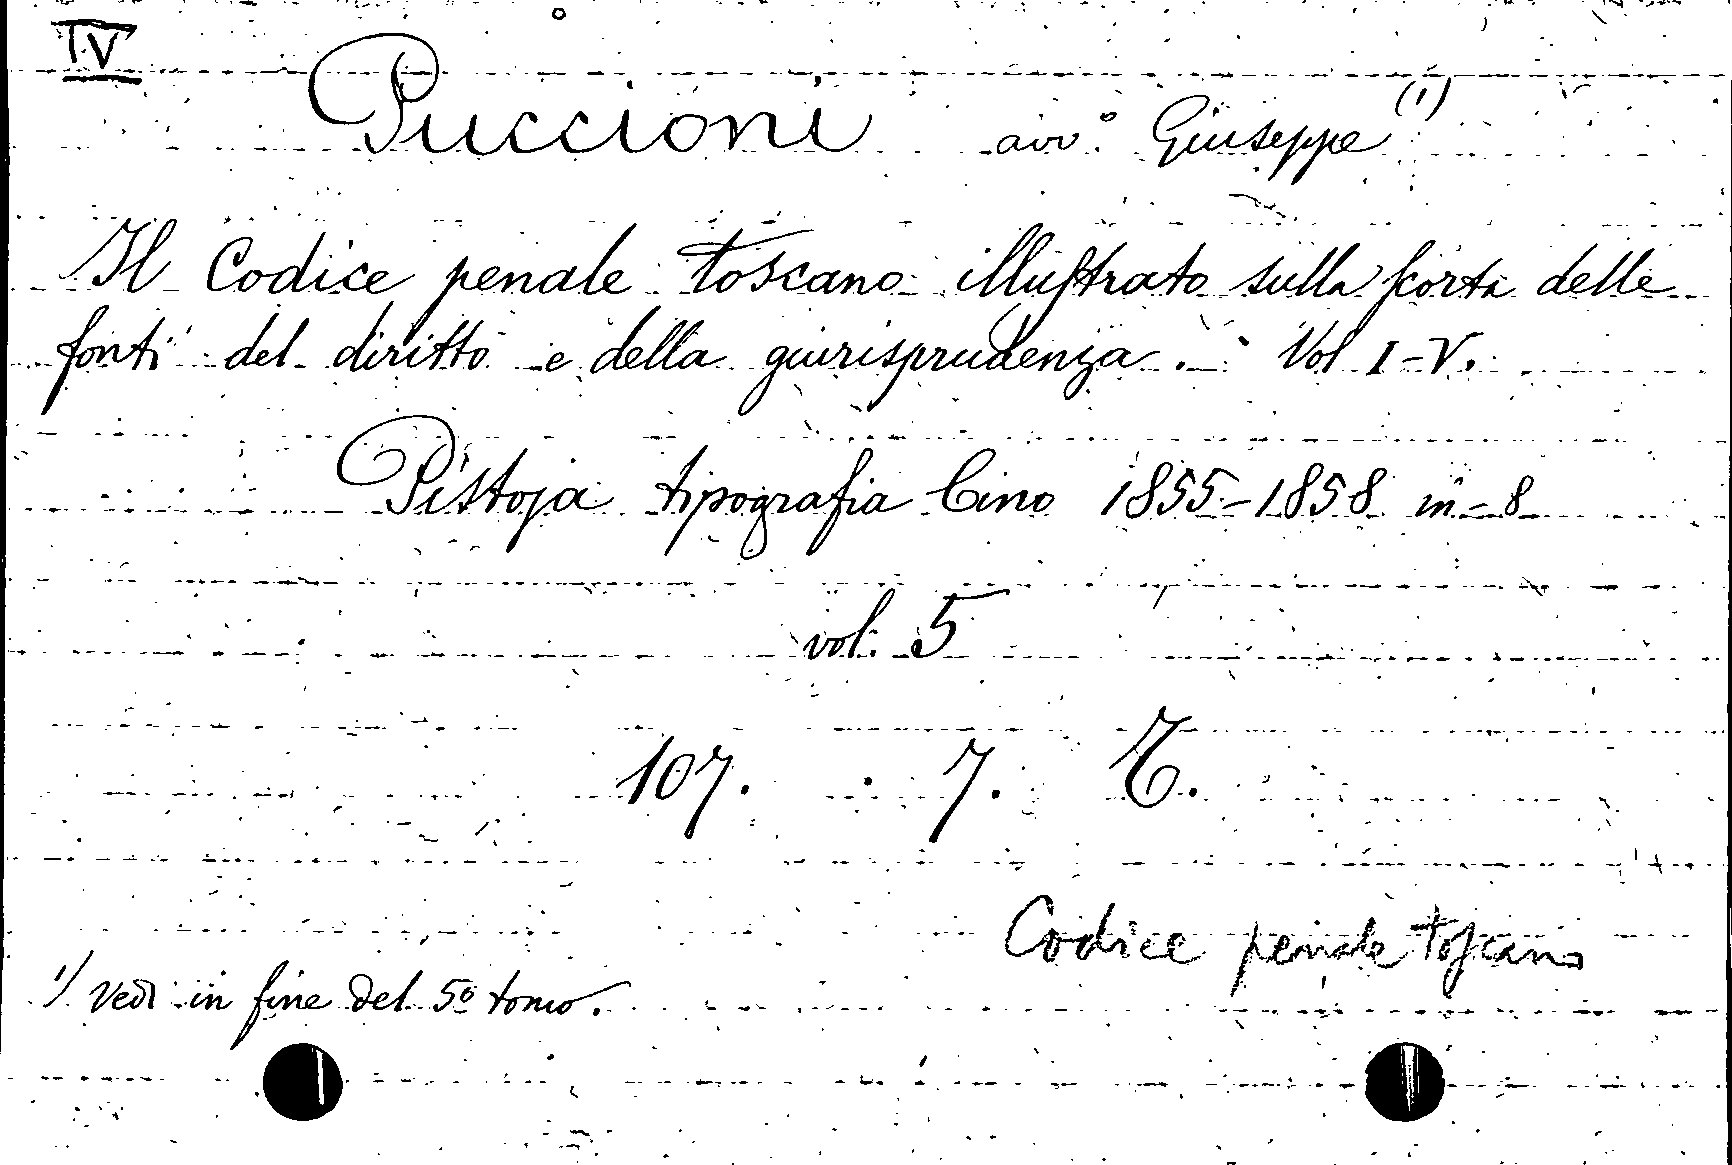 IV
Puccioni avv.° Giuseppe (1)
Il Codice penale toscano illustrato sulla scorta delle
fonti del diritto e della giurisprudenza. Vol I-V.
Pistoja tipografia Cino 1855-1858 in-8
vol. 5
107. 7.
Codice penale toscano
1/ Vedi in fine del 5º tomo.